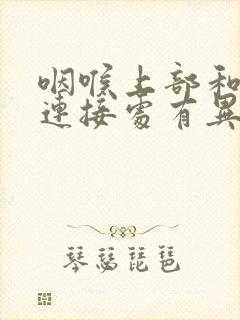 咽喉上部和
連接處有異
琴瑟琵琶